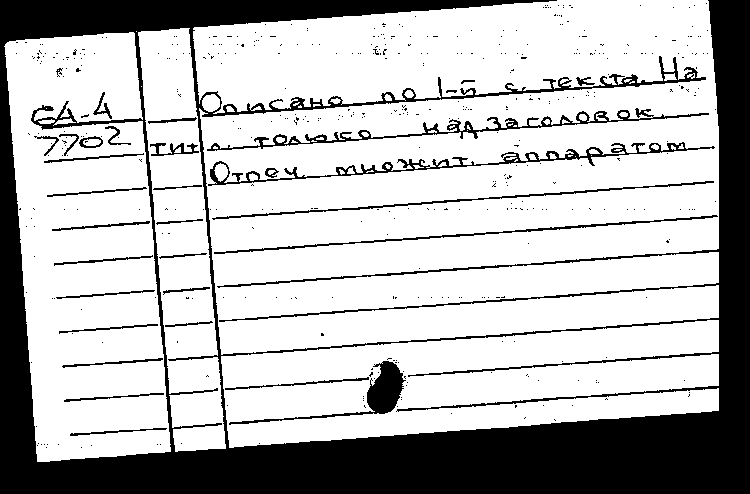 6А-4
7702
Описано по 1-й с. текста. На
тит. л. только надзаголовок.
Отпеч. множит. аппаратом